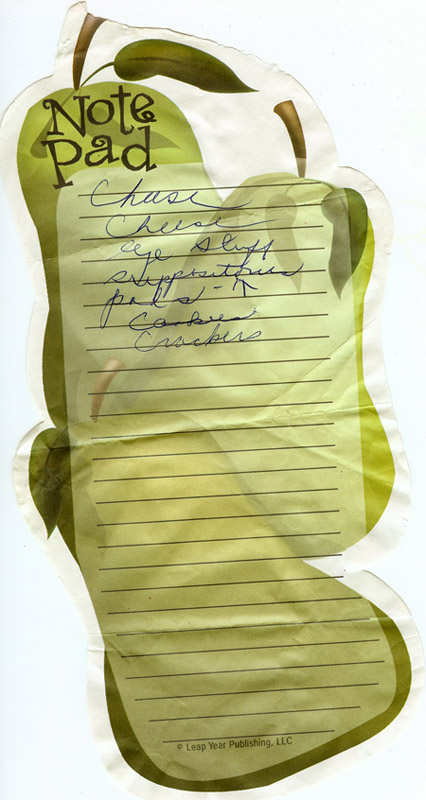 Note
Pad
Cheese
Cheese
eye stuff
suppositories
pads - ↑
Cookies
Crackers
© Leap Year Publishing, LLC